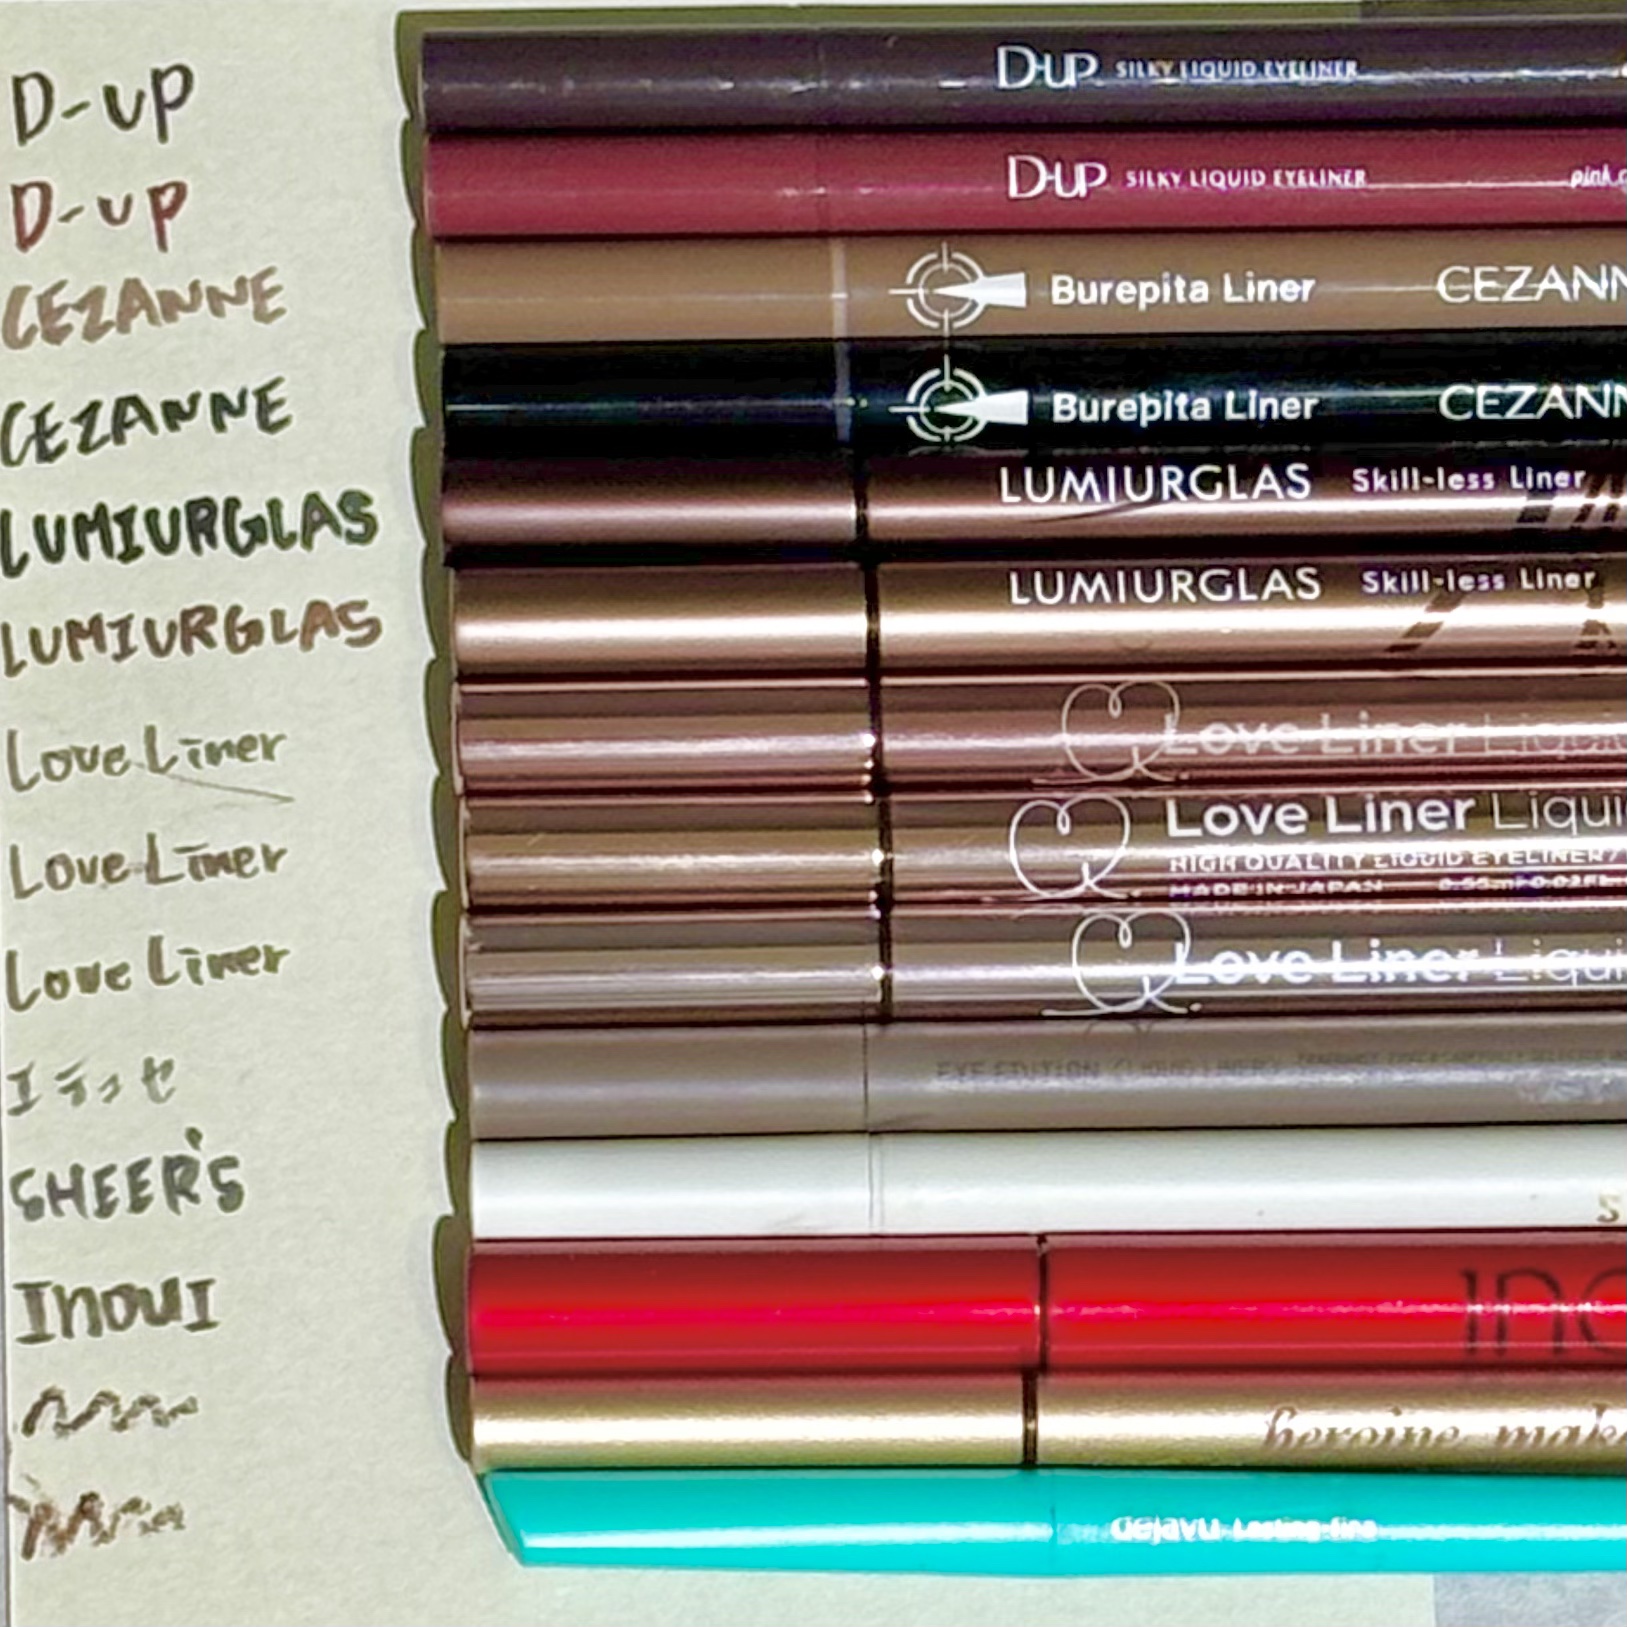 D-UP D-UP SILKY LIQUID EYELINER
D-UP D-UP SILKY LIQUID EYELINER pink
CEZANNE Burepita Liner CEZANN
CEZANNE Burepita Liner CEZANN
LUMIURGLAS LUMIURGLAS Skill-less Liner
LUMIURGLAS LUMIURGLAS Skill-less Liner
Love Liner Love Liner Liquid
Love Liner Love Liner Liqui
HIGH QUALITY LIQUID EYELINER
MADE IN JAPAN
Love Liner Love Liner Liqui
エテュセ EYE EDITION (LIQUID LINER)
SHEER'S S
INOUI INO
heroine make
dejavu Lasting-fine